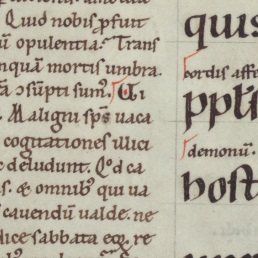 Quid nobis ꝓfuit
ū opulentia? Trans
nquā mortis umbra.
ā ↄsūpti sum᷒. Ui
. Maligni sp̄s uaca
cogitationes illici
c deludunt. Qd̓ ca
s. & omnib᷒ qui ua
cauendū ualde. ne
dice sabbata eoꝝ re
quis
cordis affe
ppl̓s
demonū.
host